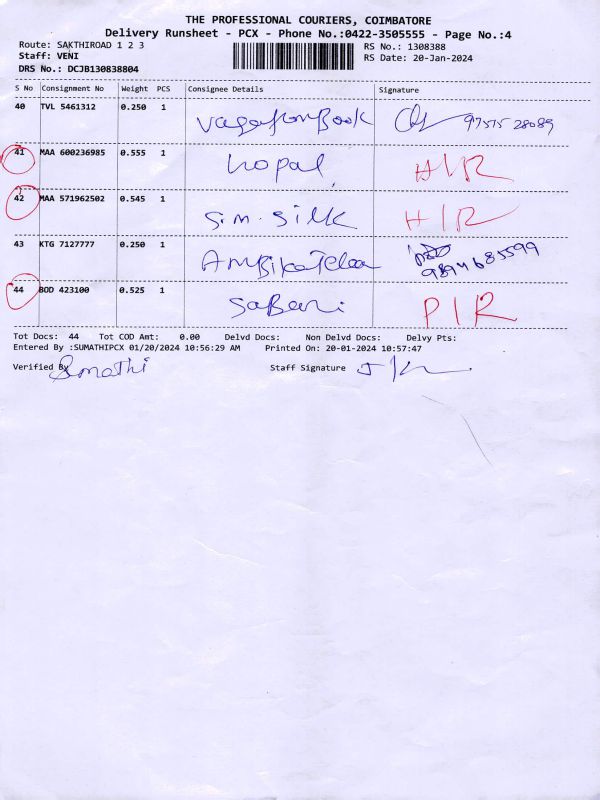 THE PROFESSIONAL COURIERS, COIMBATORE
Delivery Runsheet - PCX - Phone No.:0422-3505555 - Page No.:4
Route: SAKTHIROAD 1 2 3
RS No.: 1308388
Staff: VENI
RS Date: 20-Jan-2024
DRS No.: DCJB130838804
S No Consignment No Weight PCS Consignee Details Signature
40 TVL 5461312 0.250 1 97575 28089
41 MAA 600236985 0.555 1 nopal H/R
42 MAA 571962502 0.545 1 S.m. Silk H/R
43 KTG 7127777 0.250 1 9894685599
44 BOD 423100 0.525 1 SaBari P/R
Tot Docs: 44 Tot COD Amt: 0.00 Delvd Docs: Non Delvd Docs: Delvy Pts:
Entered By :SUMATHIPCX 01/20/2024 10:56:29 AM Printed On: 20-01-2024 10:57:47
Verified By Staff Signature